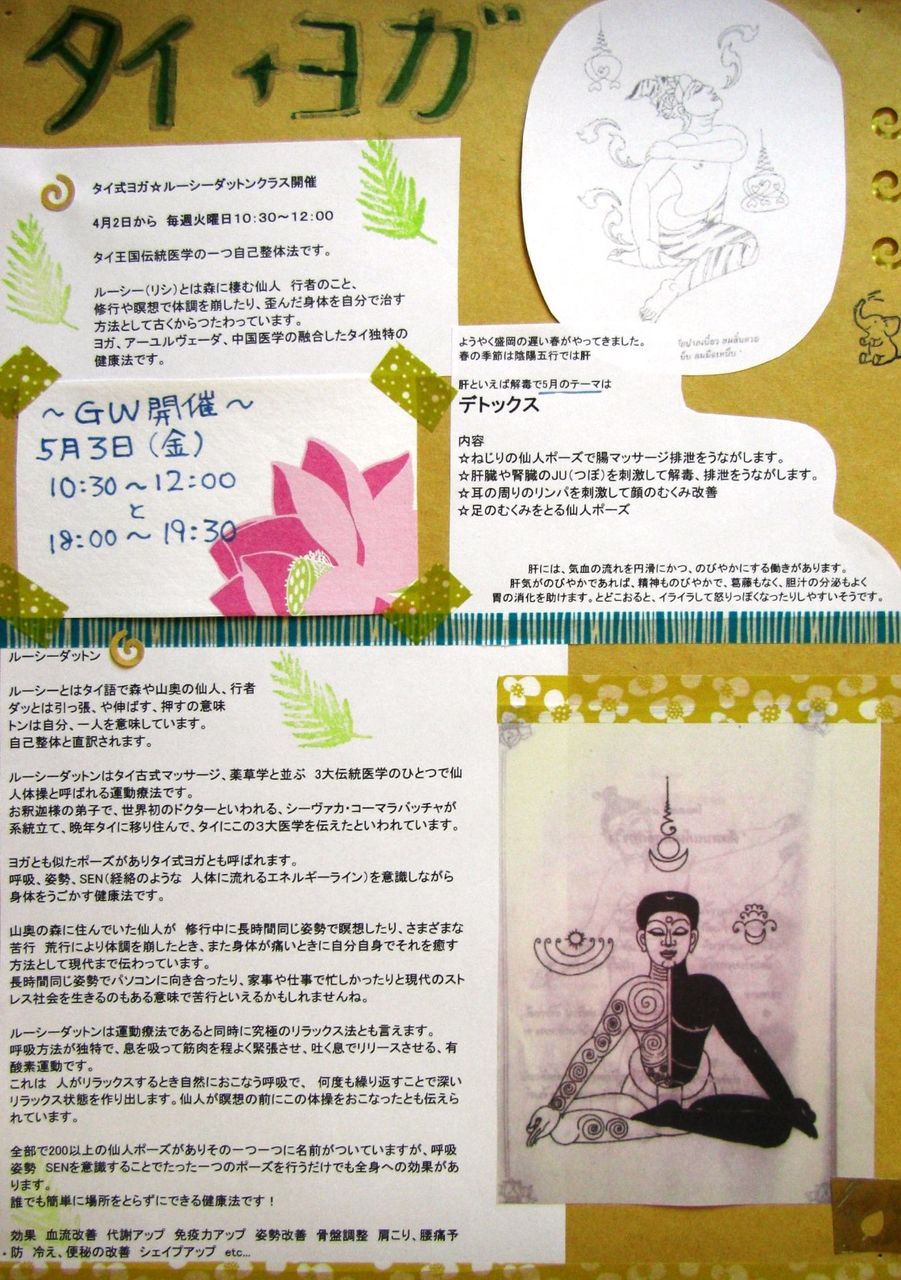 タイ・ヨガ
タイ式ヨガ☆ルーシーダットンクラス開催
4月2日から 毎週火曜日10:30~12:00
タイ王国伝統医学の一つ自己整体法です。
ルーシー(リシ)とは森に棲む仙人 行者のこと、
修行や瞑想で体調を崩したり、歪んだ身体を自分で治す
方法として古くからつたわっています。
ヨガ、アーユルヴェーダ、中国医学の融合したタイ独特の
健康法です。
~GW開催~
5月3日(金)
10:30~12:00
と
18:00~19:30
ようやく盛岡の遅い春がやってきました。
春の季節は陰陽五行では肝
肝といえば解毒で5月のテーマは
デトックス
内容
☆ねじりの仙人ポーズで腸マッサージ排泄をうながします。
☆肝臓や腎臓のJU(つぼ)を刺激して解毒、排泄をうながします。
☆耳の周りのリンパを刺激して顔のむくみ改善
☆足のむくみをとる仙人ポーズ
肝には、気血の流れを円滑にかつ、のびやかにする働きがあります。
肝気がのびやかであれば、精神ものびやかで、葛藤もなく、胆汁の分泌もよく
胃の消化を助けます。とどこおると、イライラして怒りっぽくなったりしやすいそうです。
ルーシーダットン
ルーシーとはタイ語で森や山奥の仙人、行者
ダッとは引っ張、や伸ばす、押すの意味
トンは自分、一人を意味しています。
自己整体と直訳されます。
ルーシーダットンはタイ古式マッサージ、薬草学と並ぶ 3大伝統医学のひとつで仙
人体操と呼ばれる運動療法です。
お釈迦様の弟子で、世界初のドクターといわれる、シーヴァカ・コーマラバッチャが
系統立て、晩年タイに移り住んで、タイにこの3大医学を伝えたといわれています。
ヨガとも似たポーズがありタイ式ヨガとも呼ばれます。
呼吸、姿勢、SEN(経絡のような 人体に流れるエネルギーライン)を意識しながら
身体をうごかす健康法です。
山奥の森に住んでいた仙人が 修行中に長時間同じ姿勢で瞑想したり、さまざまな
苦行 荒行により体調を崩したとき、また身体が痛いときに自分自身でそれを癒す
方法として現代まで伝わっています。
長時間同じ姿勢でパソコンに向き合ったり、家事や仕事で忙しかったりと現代のスト
レス社会を生きるのもある意味で苦行といえるかもしれませんね。
ルーシーダットンは運動療法であると同時に究極のリラックス法とも言えます。
呼吸方法が独特で、息を吸って筋肉を程よく緊張させ、吐く息でリリースさせる、有
酸素運動です。
これは 人がリラックスするとき自然におこなう呼吸で、 何度も繰り返すことで深い
リラックス状態を作り出します。仙人が瞑想の前にこの体操をおこなったとも伝えら
れています。
全部で200以上の仙人ポーズがありその一つ一つに名前がついていますが、呼吸
姿勢 SENを意識することでたった一つのポーズを行うだけでも全身への効果があ
ります。
誰でも簡単に場所をとらずにできる健康法です!
効果 血流改善 代謝アップ 免疫力アップ 姿勢改善 骨盤調整 肩こり、腰痛予
防 冷え、便秘の改善 シェイプアップ etc...